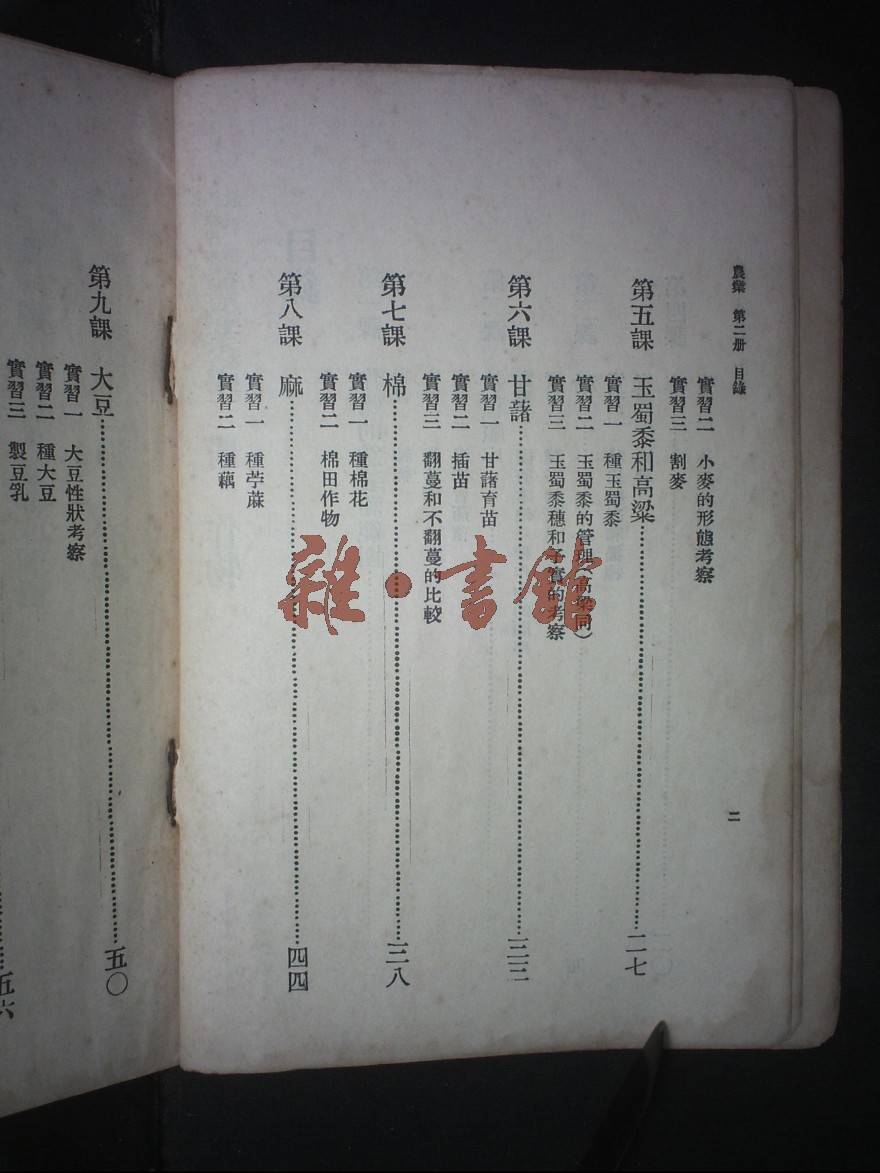 農業 第二册 目錄
二
實習二 小麥的形態考察
實習三 割麥
第五課 玉蜀黍和高粱……二七
實習一 種玉蜀黍
實習二 玉蜀黍的管理(高粱同)
實習三 玉蜀黍穗和子實的考察
第六課 甘藷……三三
實習一 甘藷育苗
實習二 插苗
實習三 翻蔓和不翻蔓的比較
第七課 棉……三八
實習一 種棉花
實習二 棉田作物
第八課 麻……四四
實習一 種苧蔴
實習二 種藕
第九課 大豆……五〇
實習一 大豆性狀考察
實習二 種大豆
實習三 製豆乳
五六
雜·書館